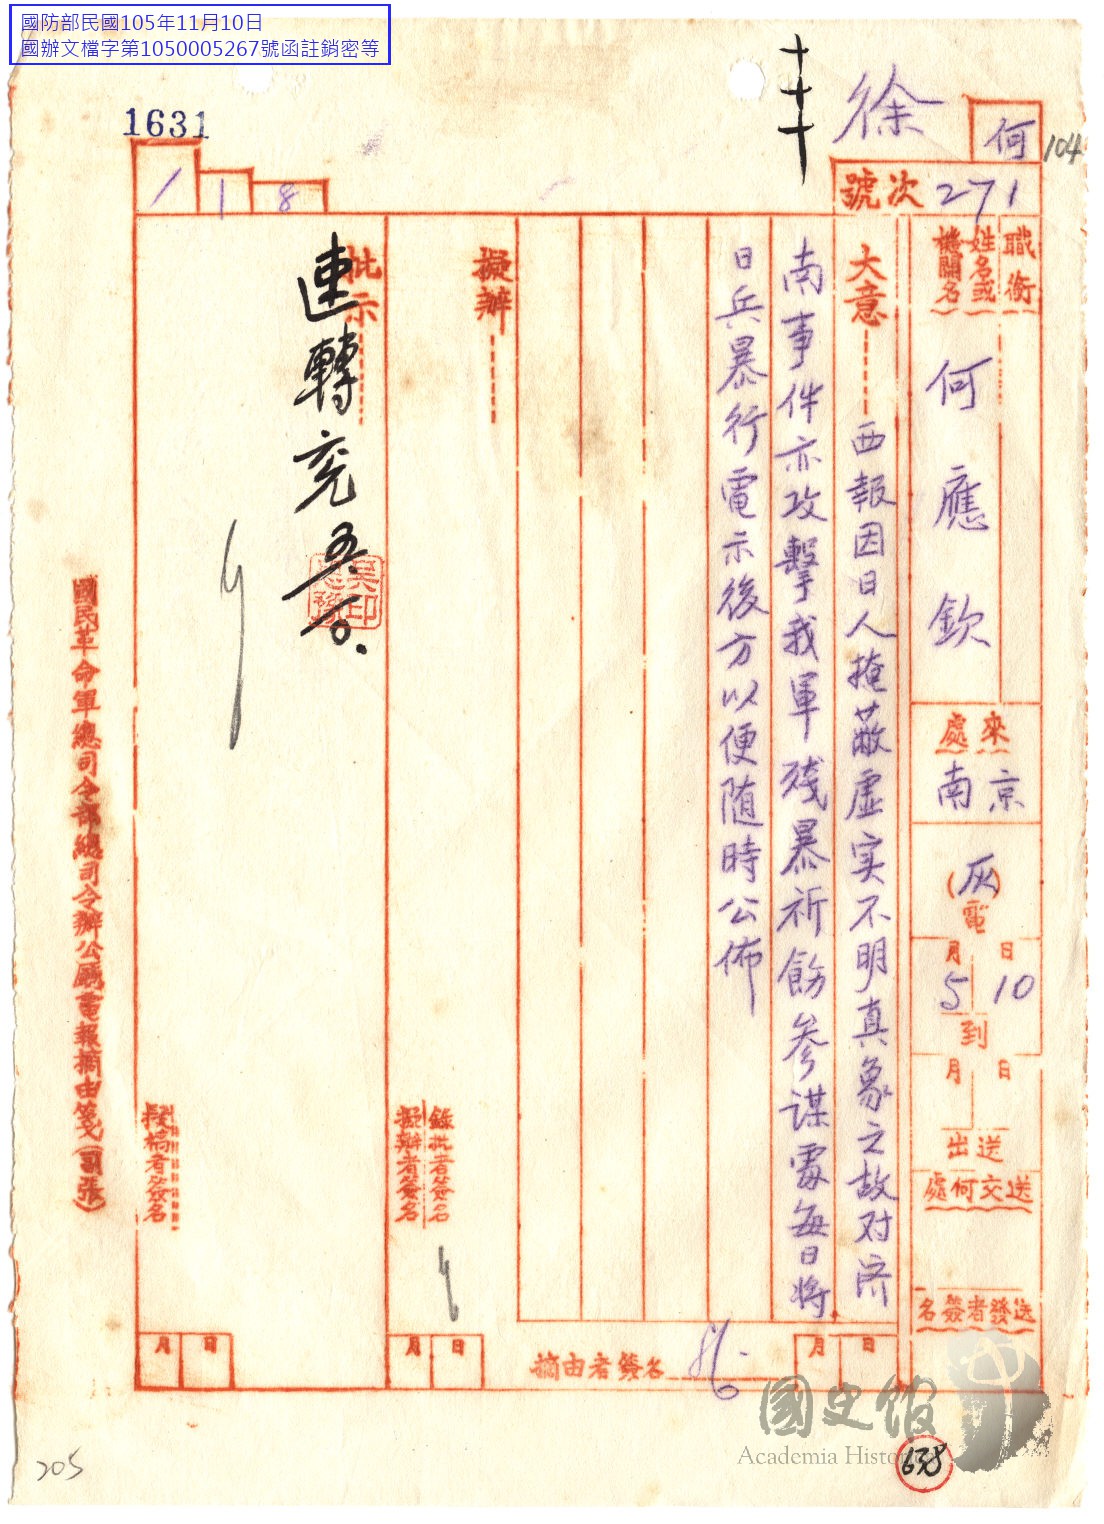 國防部民國105年11月10日
國辦文檔字第1050005267號函註銷密等
1631
徐
何
104
號次 271
1 1 8
職銜
姓名或
機關名
何應欽
來處
南京
(灰)電
5月10日
到
月 日
送出
送交何處
送發者簽名
大意
西報因日人掩蔽虛实不明真象之故对済
南事件亦攻擊我軍殘暴祈飭參謀處每日將
日兵暴行電示後方以便随時公佈
月 日
摘由者簽名
擬辦
錄批者簽名
擬辦者簽名
月 日
批示
速轉
擬稿者簽名
月 日
國民革命軍總司令部總司令辦公廳電報摘由箋(副張)
205
638
國史館
Academia Historica